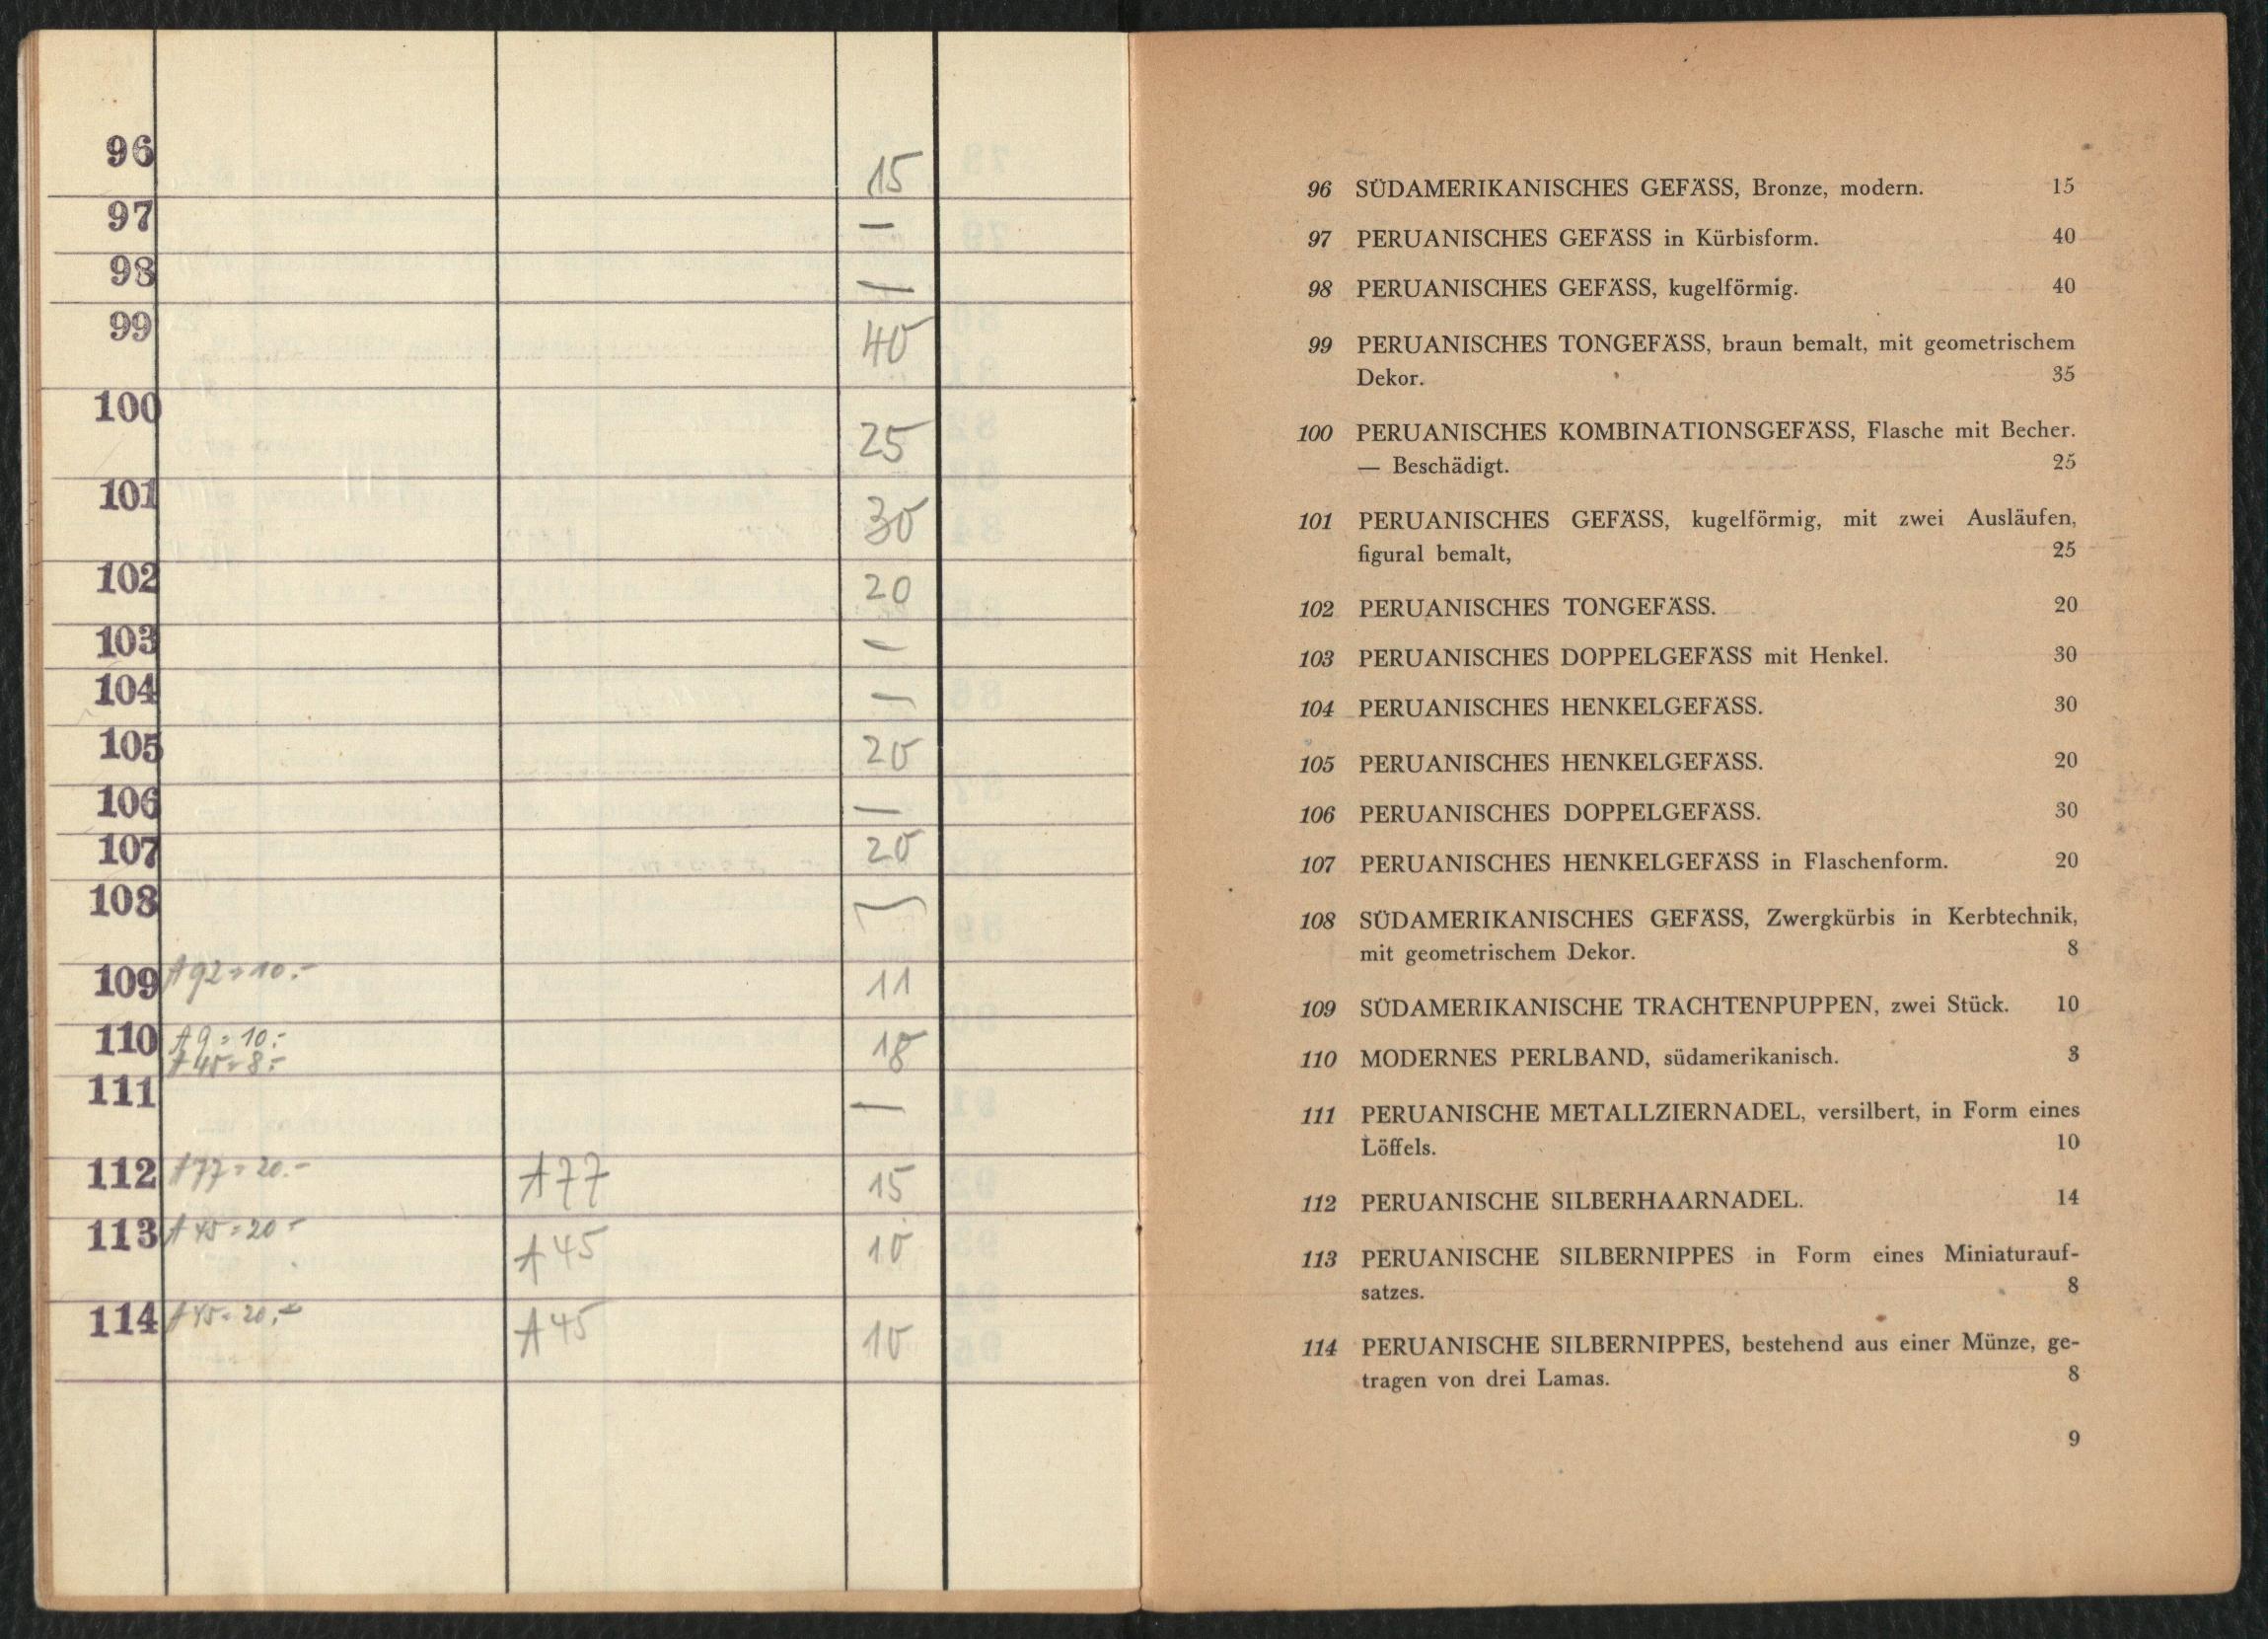 96 15
97 —
98 —
99 40
100 25
101 30
102 20
103 —
104 —
105 20
106 —
107 20
108 —
109 A 92 = 10.- 11
110 A 9 = 10.- 18
A 45 = 8.-
111 —
112 A 77 = 20.- A 77 15
113 A 45 = 20.- A 45 10
114 A 45 = 20.- A 45 10
96 SÜDAMERIKANISCHES GEFÄSS, Bronze, modern. 15
97 PERUANISCHES GEFÄSS in Kürbisform. 40
98 PERUANISCHES GEFÄSS, kugelförmig. 40
99 PERUANISCHES TONGEFÄSS, braun bemalt, mit geometrischem
Dekor. 35
100 PERUANISCHES KOMBINATIONSGEFÄSS, Flasche mit Becher.
— Beschädigt. 25
101 PERUANISCHES GEFÄSS, kugelförmig, mit zwei Ausläufen,
figural bemalt, 25
102 PERUANISCHES TONGEFÄSS. 20
103 PERUANISCHES DOPPELGEFÄSS mit Henkel. 30
104 PERUANISCHES HENKELGEFÄSS. 30
105 PERUANISCHES HENKELGEFÄSS. 20
106 PERUANISCHES DOPPELGEFÄSS. 30
107 PERUANISCHES HENKELGEFÄSS in Flaschenform. 20
108 SÜDAMERIKANISCHES GEFÄSS, Zwergkürbis in Kerbtechnik,
mit geometrischem Dekor. 8
109 SÜDAMERIKANISCHE TRACHTENPUPPEN, zwei Stück. 10
110 MODERNES PERLBAND, südamerikanisch. 3
111 PERUANISCHE METALLZIERNADEL, versilbert, in Form eines
Löffels. 10
112 PERUANISCHE SILBERHAARNADEL. 14
113 PERUANISCHE SILBERNIPPES in Form eines Miniaturauf-
satzes. 8
114 PERUANISCHE SILBERNIPPES, bestehend aus einer Münze, ge-
tragen von drei Lamas. 8
9